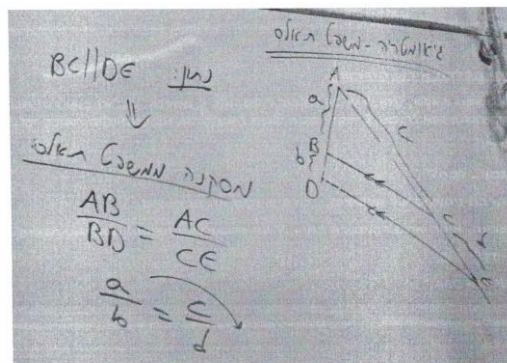 גיאומטריה - משפט תאלס
נתון: BC||DE
⇓
מסקנה ממשפט תאלס:
AB/BD = AC/CE
a/b = c/d
A
a
B
b
D
c
C
d